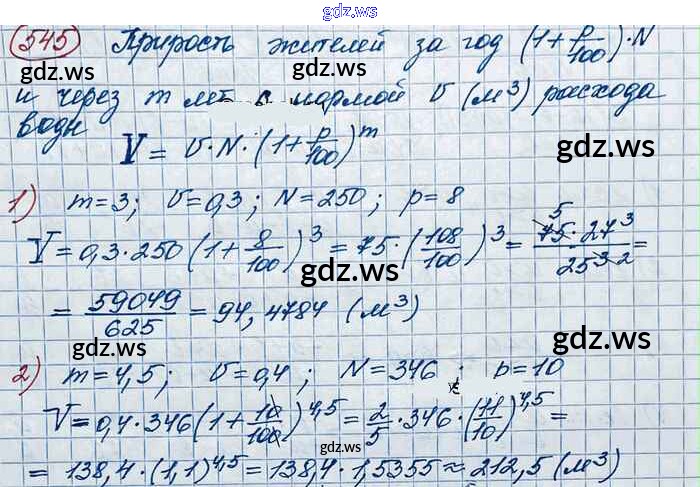 gdz.ws
545 Прирость жителей за год (1+p/100)·N
gdz.ws gdz.ws
и через m лет с нормой υ (м³) расхода
воды
V = υ·N·(1+p/100)^m
gdz.ws
1) m=3; υ=0,3; N=250; p=8
V=0,3·250(1+8/100)^3=75·(108/100)^3=(5 75·27^3)/(25^3 2)=
gdz.ws gdz.ws
=59049/625=94,4784 (м³)
gdz.ws
2) m=4,5; υ=0,4; N=346; p=10
gdz.ws
V=0,4·346(1+10/100)^4,5=2/5·346·(11/10)^4,5=
gdz.ws
=138,4·(1,1)^4,5=138,4·1,5355≈212,5 (м³)
gdz.ws